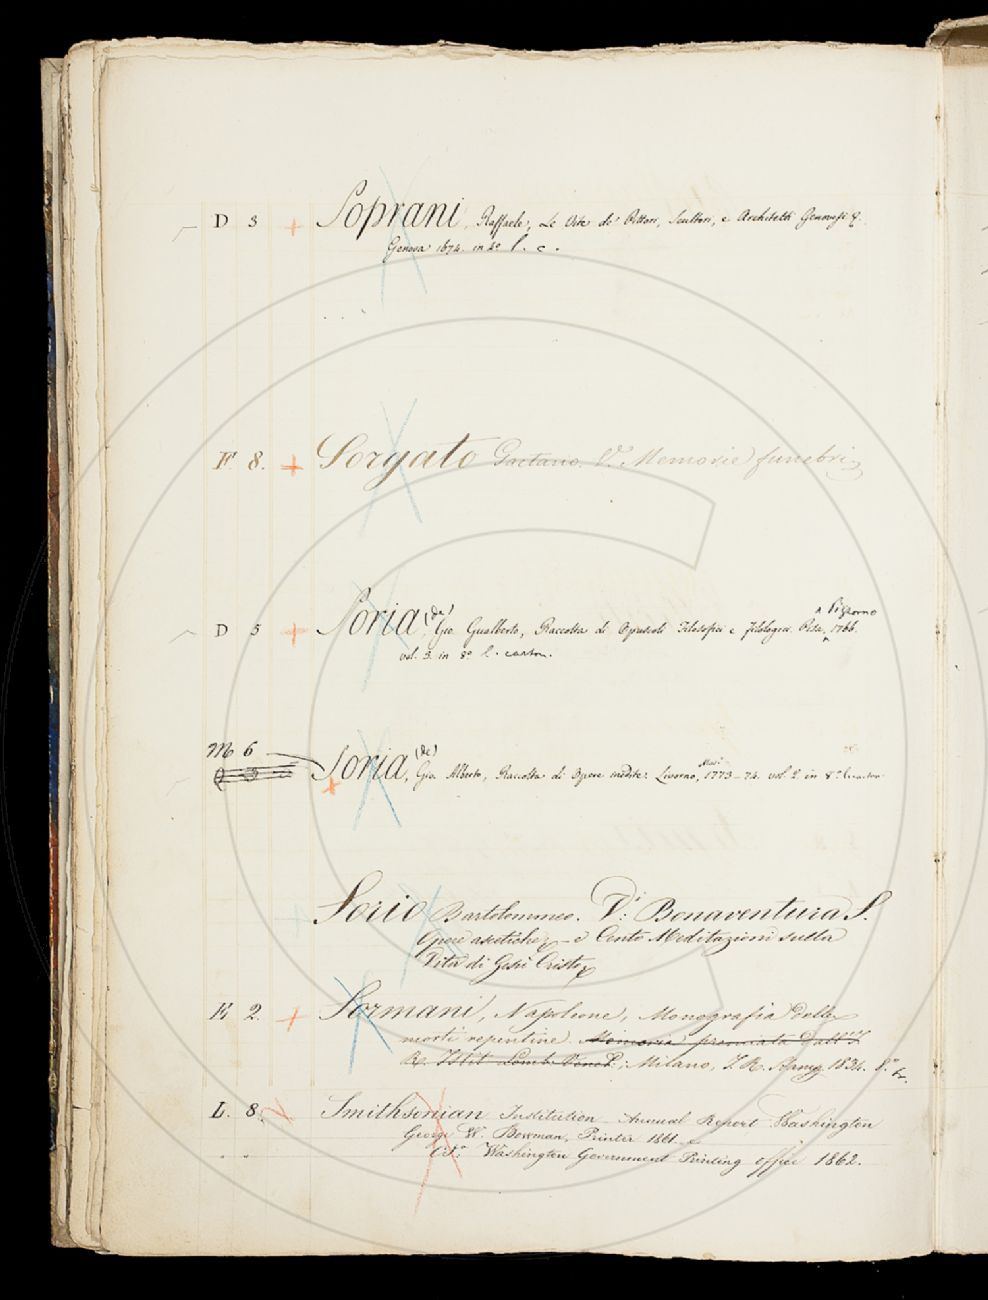 D 3 + Soprani, Raffaele, Le Vite de' Pittori, Scultori, e Architetti Genovesi &.
Genova 1674. in 4° l. c.
F. 8. + Sorgato Gaetano. V. Memorie funebri
a Pizzorno
D 5 + Soria (de), Gio. Gualberto, Raccolta di Opuscoli Filosofici e filologici. Pisa, 1766.
vol. 3. in 8° l. carton.
M 6
Soria, (de) Gio. Alberto, Raccolta di Opere inedite. Livorno, Masi 1773-74. vol. 2 in 8°
+
Sorio Bartolommeo. V: Bonaventura S.
Opere ascetiche, - e Cento Meditazioni sulla
Vita di Gesù Cristo
E 2. + Sormani, Napoleone, Monografia delle
morti repentine. Memoria premiata dall'I.
R. Istit. Lomb. Venet.; Milano, I. R. Stamp. 1834. 8.° br.
L. 8. Smithsonian Institution Annual Report Washington
George W. Bowman, Printer 1861.
Washington Government Printing office 1862.